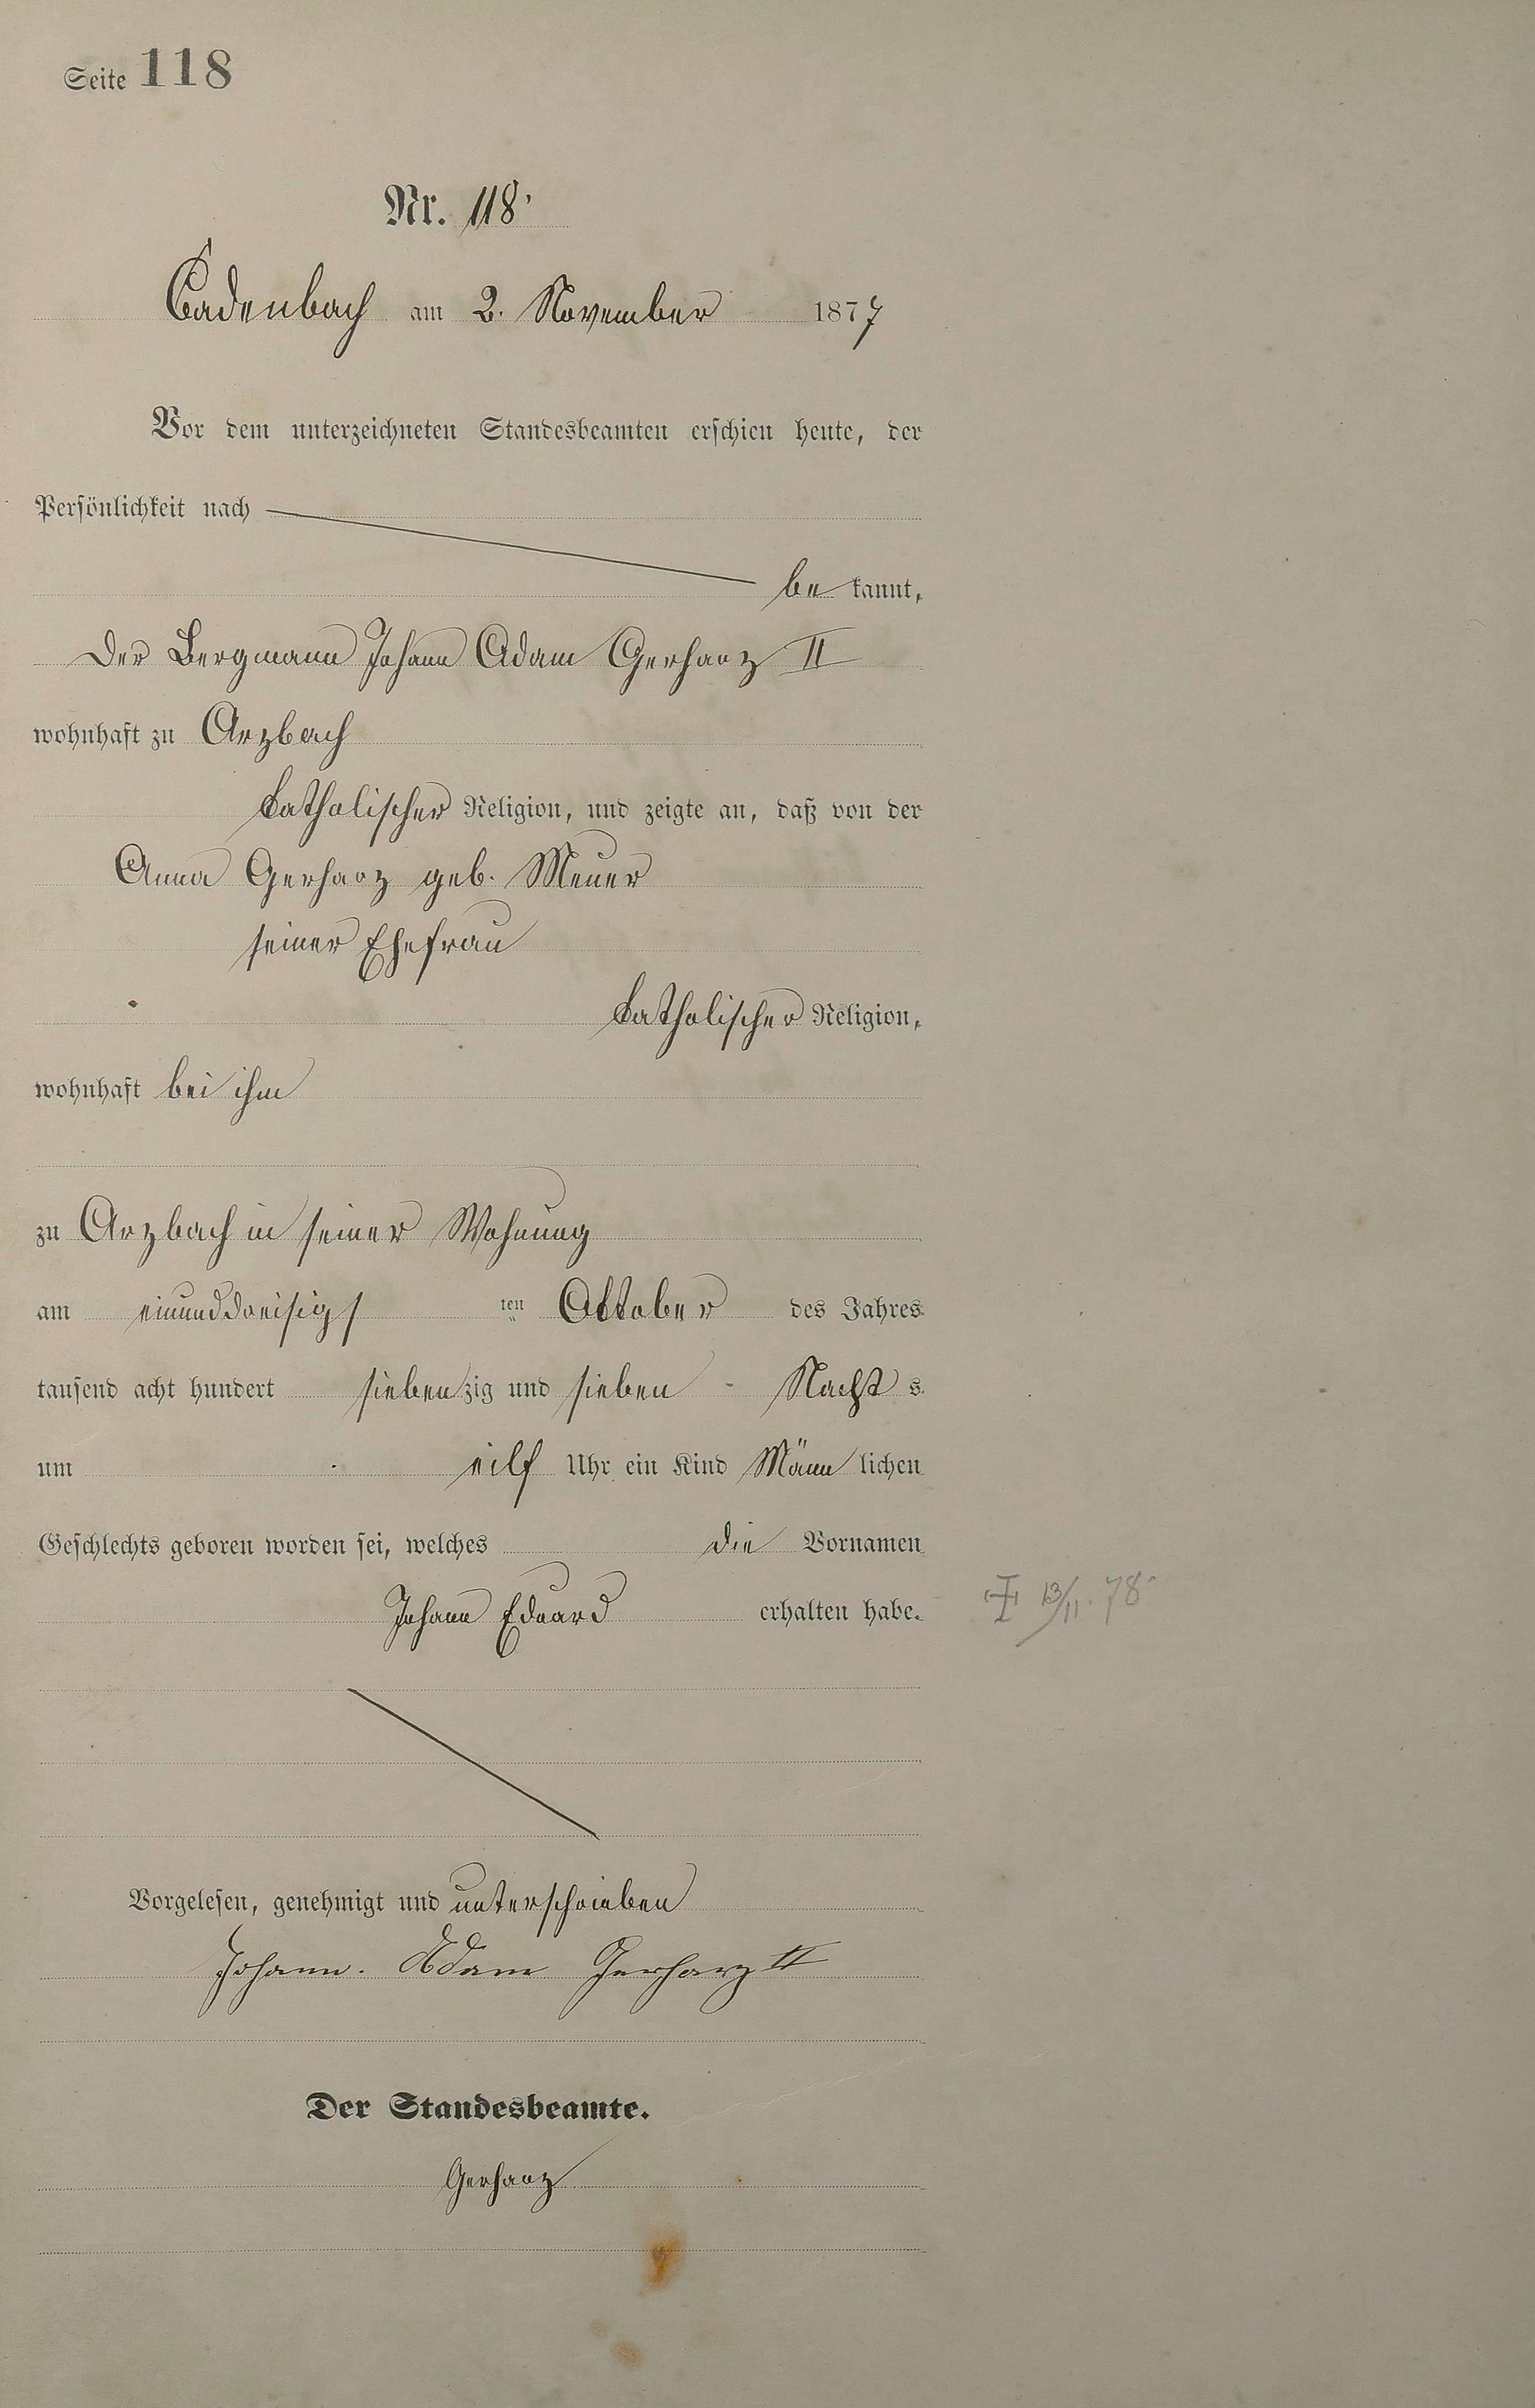 Seite 118
Nr. 118.
Cadenbach am 2. November 1877
Vor dem unterzeichneten Standesbeamten erschien heute, der
Persönlichkeit nach
be kannt,
Der Bergmann Johann Adam Gerharz II
wohnhaft zu Arzbach
katholischer Religion, und zeigte an, daß von der
Anna Gerharz geb. Meuer
seiner Ehefrau
katholischer Religion,
wohnhaft bei ihm
zu Arzbach in seiner Wohnung
am einunddreisigs ten Oktober des Jahres
tausend acht hundert siebenzig und sieben Nachts
um eilf Uhr ein Kind Männlichen
Geschlechts geboren worden sei, welches die Vornamen
Johann Eduard erhalten habe. † 13/11. 78
Vorgelesen, genehmigt und unterschrieben
Johann. Adam Gerharz II
Der Standesbeamte.
Gerharz